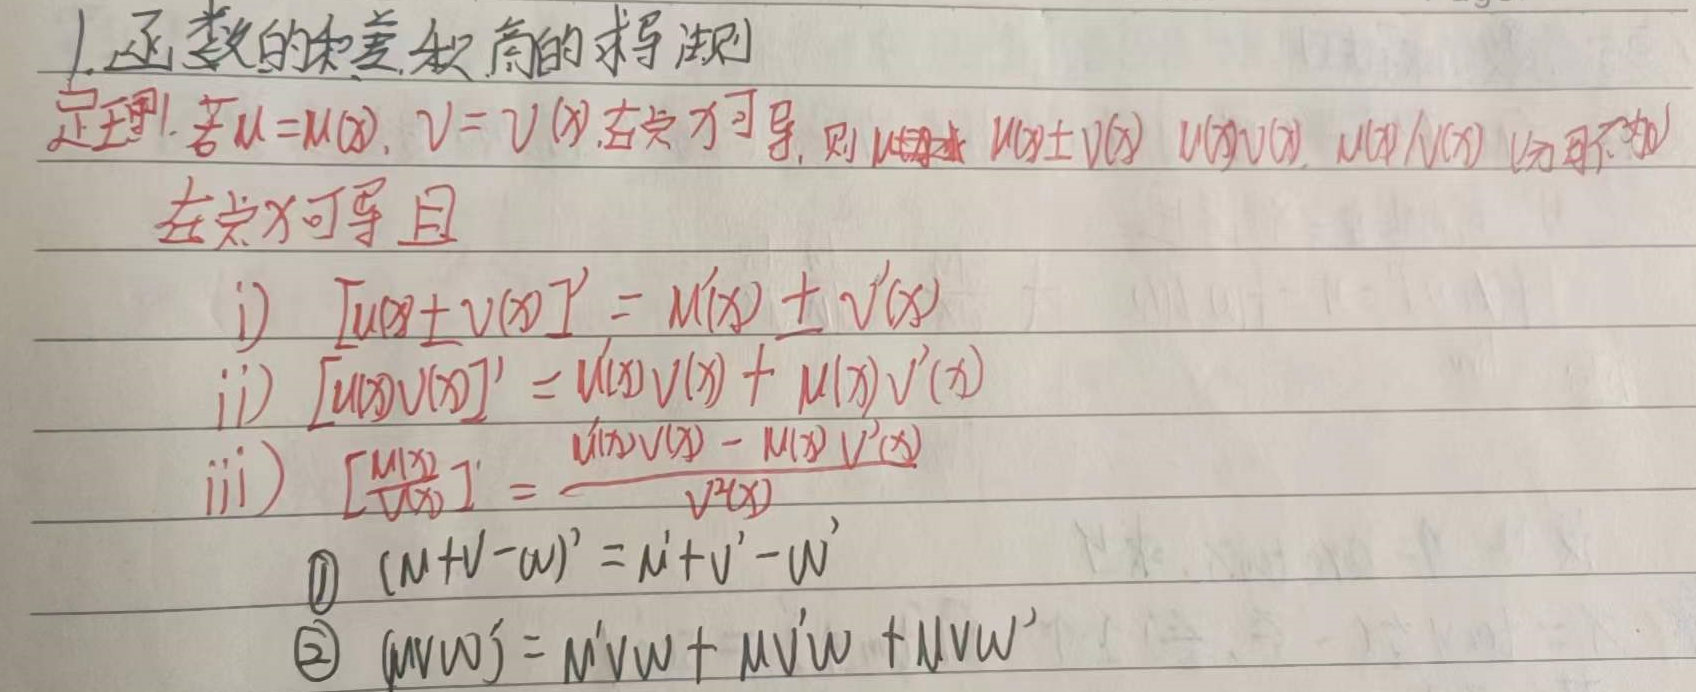 1. 函数的和差积商的求导法则
定理1. 若u=u(x), v=v(x)在点x可导, 则 u(x)±v(x) u(x)v(x) u(x)/v(x)
在点x可导 且
i) [u(x)±v(x)]' = u'(x) ± v'(x)
ii) [u(x)v(x)]' = u'(x)v(x) + u(x)v'(x)
iii) [u(x)/v(x)]' = u'(x)v(x) - u(x)v'(x) / v²(x)
① (u+v-w)' = u'+v'-w'
② (uvw)' = u'vw + uv'w + uvw'